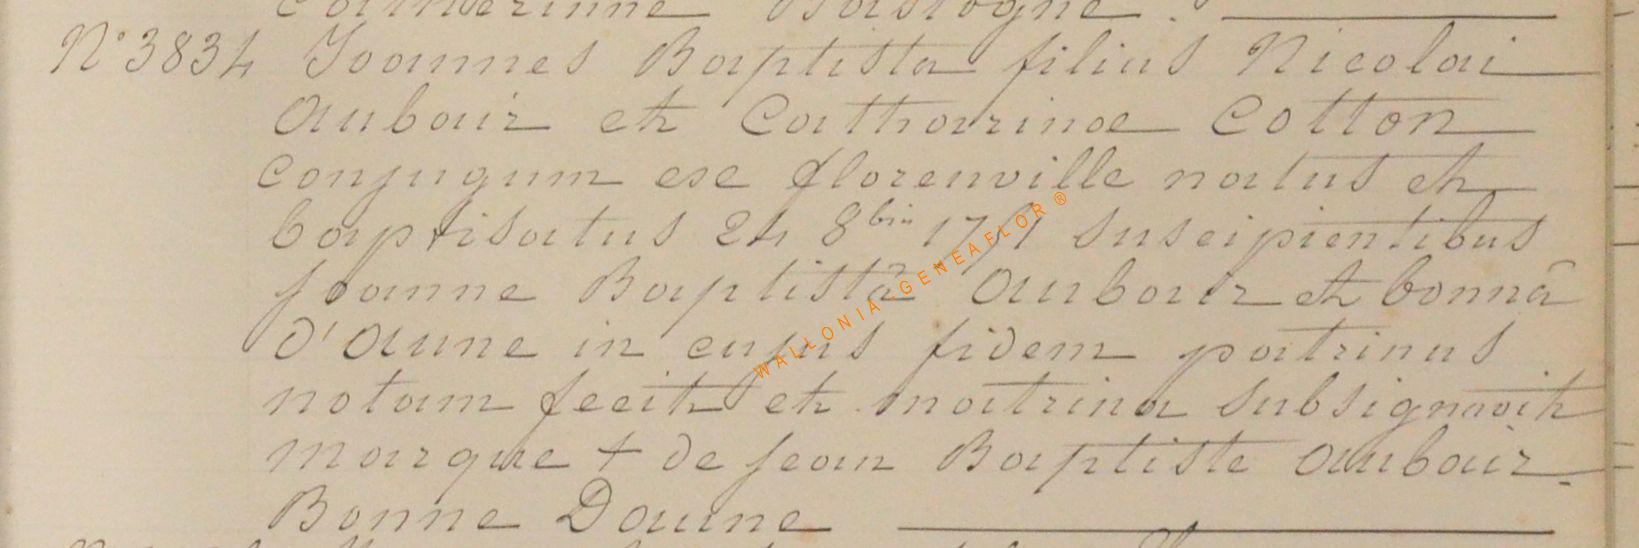 Catherinne Bastogne.
N° 3834 Joannes Baptista filius Nicolai
Aubair et Catharinae Cotton
conjugum exe florenville natus et
baptisatus 24 8bris 1761 suscipientibus
joanne Baptistâ Aubair et bonnâ
d'Aunne in cujus fidem patrinus
notam fecit et matrina subsignavit
marque + de jean Baptiste Aubair.
Bonne Daunne
WALLONIA-GENEAFLOR ®